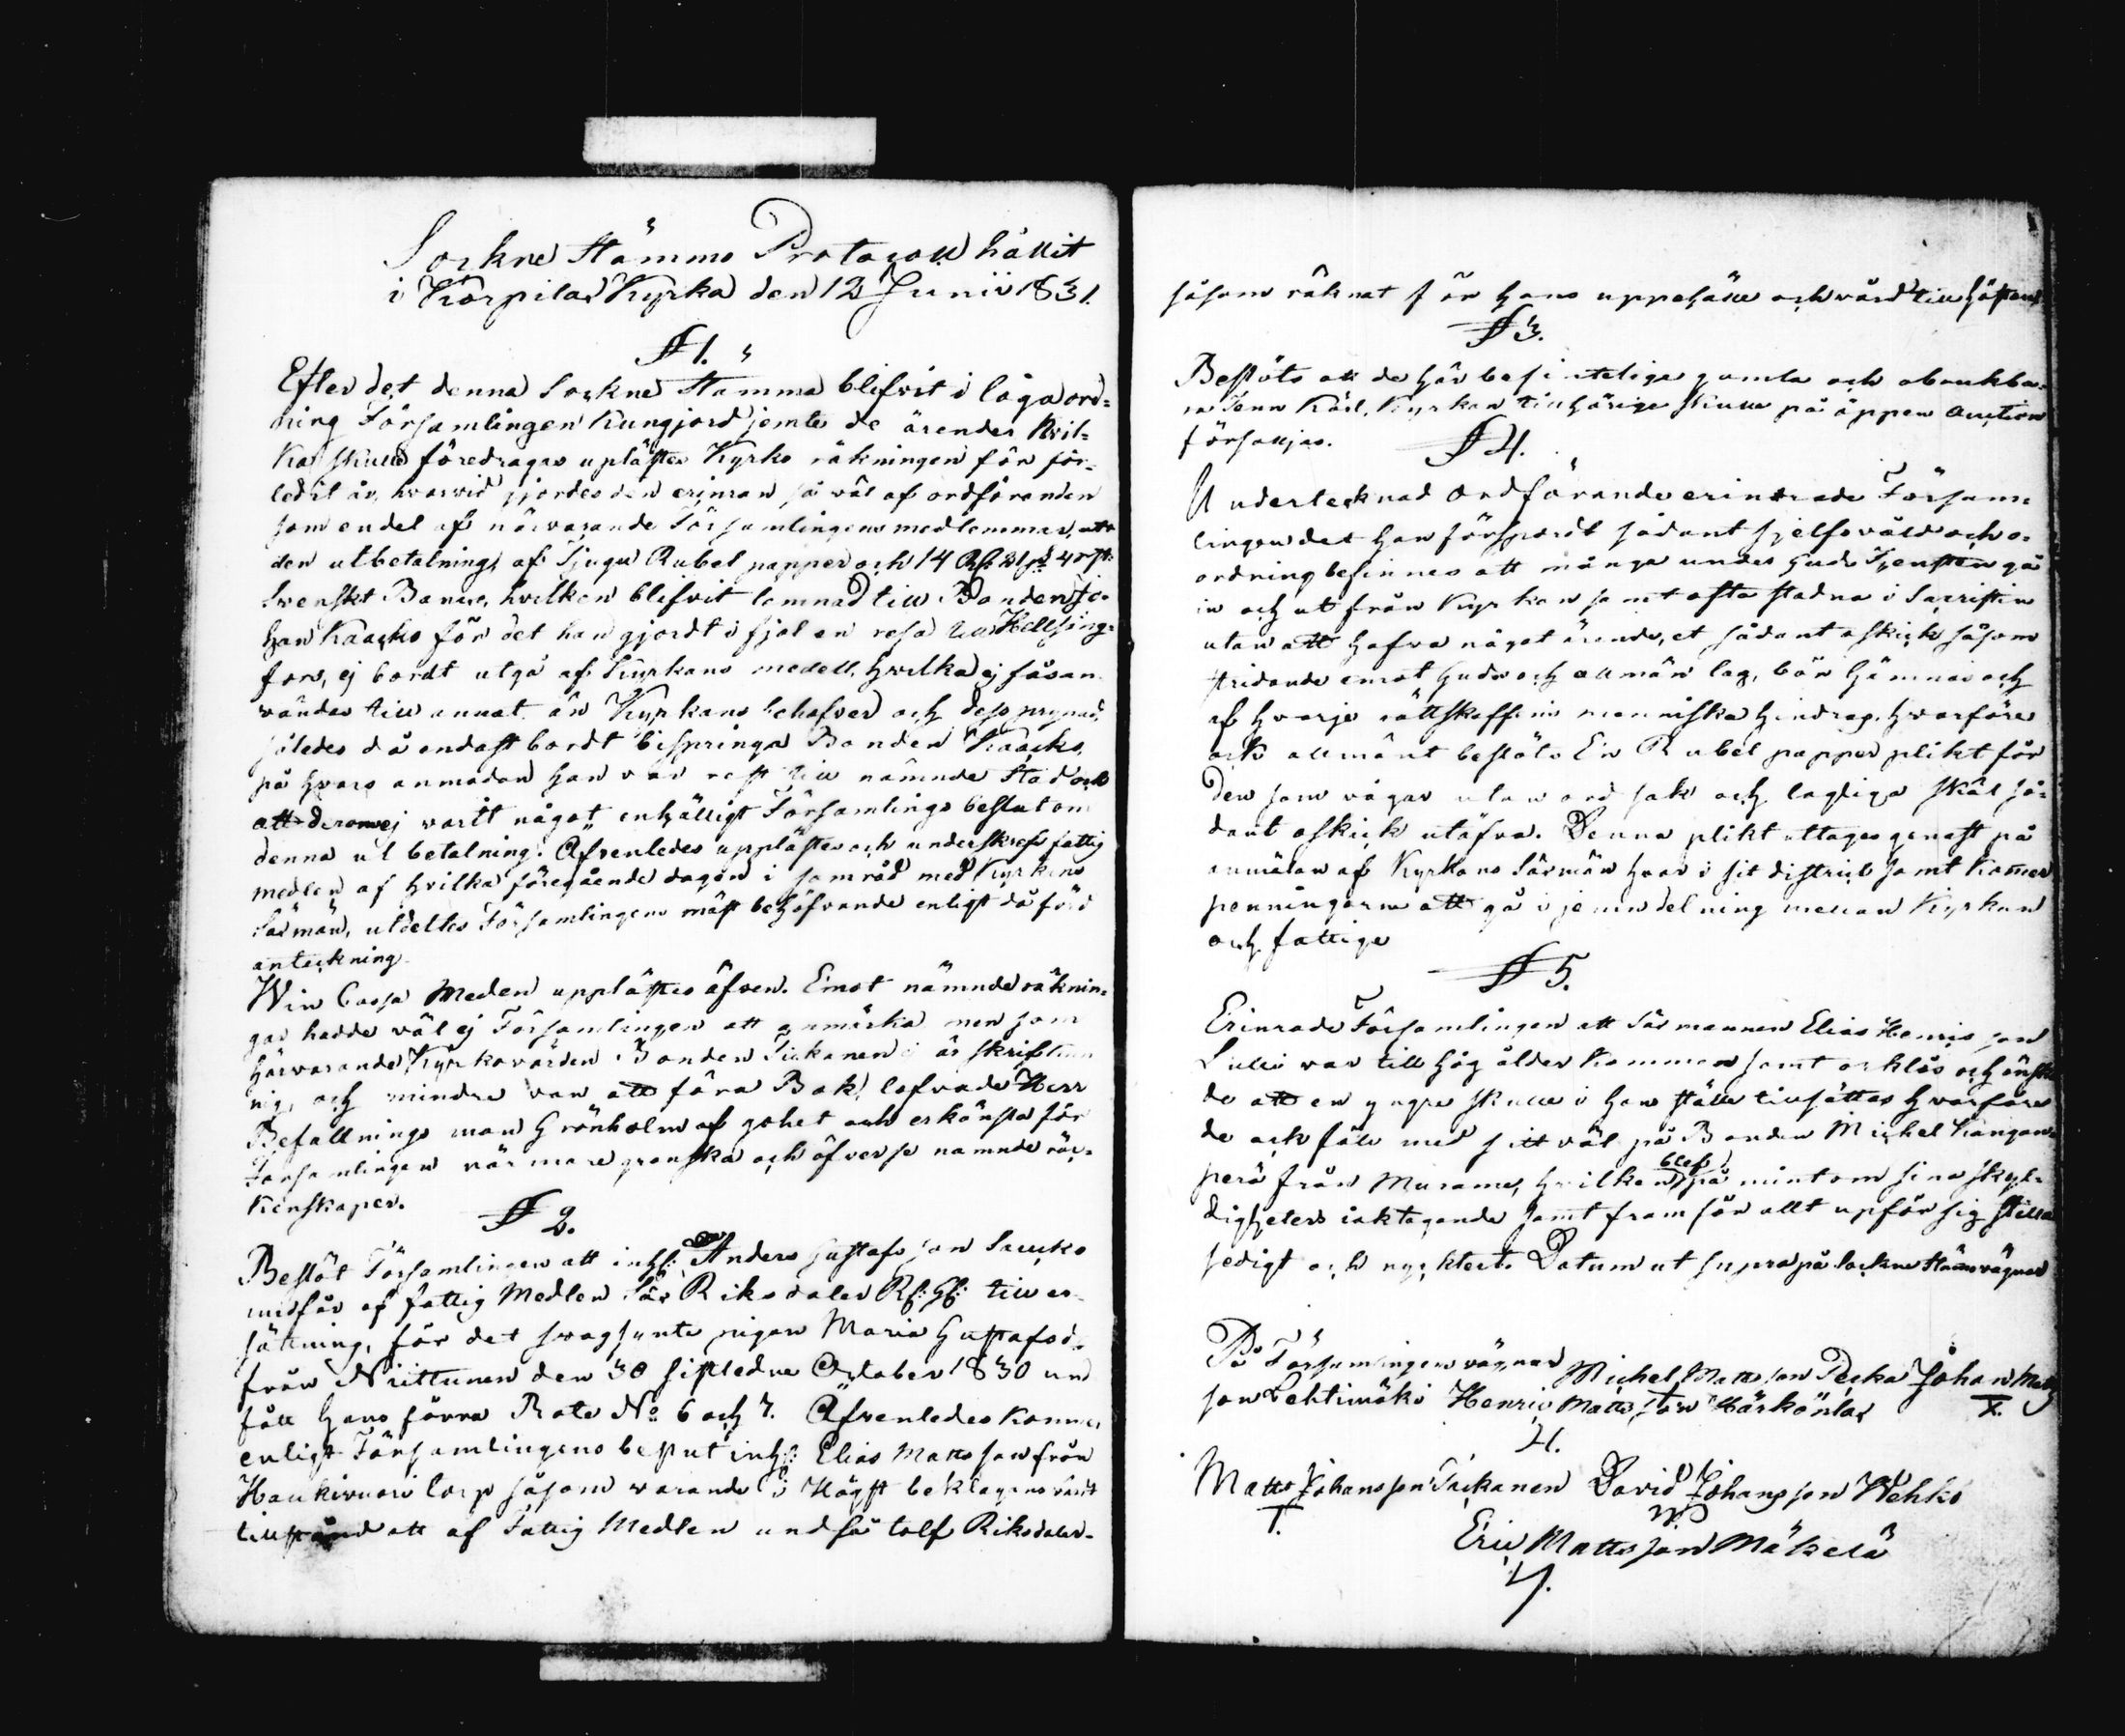 Sockne Stämmo Protocoll hållit
i Korpilax Kyrka den 12 Junii 1831.
§ 1.
Efter det denna Sockne Stämma blifvit i laga ord-
ning Församlingen kungjord jemte de ärender hvil-
ka skulle föredragas uplästes Kyrko räkningen för för-
ledit år, hvarvid gjordes den erinran så väl af ordföranden
som en del af närvarande Församlingens medlemmar, att
den utbetalning af Tjugu Rubel papper och 14 Rd 21 s 4 r
Svenskt Banco, hvilken blifvit lemnad till Bonden Jo-
han Kaacko för det han gjordt i fjol en resa till Helsing-
fors, ej bordt utgå af Kyrkans medell, hvilka ej få an-
vändas till annat än Kyrkans behofver och dess prynad,
således då endast bordt bispringa Bonden Kaacko,
på hvars anmodan han var rest till nämnde Stad och
att derom ej varit något enhälligt Församlings beslut om
denna utbetalning. Äfvenledes upplästes och underskrefs fattig
medlen af hvilka föregående dagen i samråd med Kyrkans
Säxmän, utdeltes Församlingens mäst behöfvande enligt då förd
anteckning.
Win Cassa Medlen upplästes äfven. Emot nämnde räknin-
gar hadde väl ej Församlingen att anmärka men som
härvarande Kyrkovärden Bonden Tickanen är skriftkun
nig, och mindre van att föra Bok, lofvade Herr
Befallnings man Grönholm af gohet och erkänsla för
Församlingen närmare granska och öfverse nämnde räc-
kenskaper.
§ 2.
Beslöt Församlingen att inhs: Anders Gustafs son Saucko
undfår af fattig Medlen Sex Riksdaler Rgs: till er-
sättning, för det svagsinte pigan Maria Gustafsd:
från Niittunen den 30 sistledne October 1830 und
fått hans förra Rote No 6 och 7. Äfvenledes kommer
enligt Församlingens beslut inhs: Elias Matts son från
Haukivuori Torp såsom varande i Högst beklagansvärdt
tillstånd att af Fattig Medlen undfå tolf Riksdaler.
såsom räknat för hans uppehälle och vård till hösten
§ 3.
Beslöts att de här befintelige gamla och obrukba-
ra Tenn Kärl, Kyrkan tillhörige skulle på öppen auction
försäljas.
§ 4.
Undertecknad Ordförande erinrade Försam-
lingen det han försport sådant sjelfsvåld och o-
ordning befinnes att många under Guds Tjensten gå
in och ut från Kyrkan samt ofta stadna i Sacristin
utan att hafva något ärende, et sådant oskick såsom
stridande emot Guds och allmän lag, bör hämmas och
af hvarje rättskaffens menniska hindras. Hvarföre
ock allmänt beslöts En Rubel papper plikt för
Den som vågar utan orsak och lagliga skäl så-
dant oskick utöfva. Denna plikt uttages genast på
anmälan af Kyrkans Säxmän hvar i sit district samt kommer
penningarne att gå i jemn delning mellan Kyrkan
och fattige
§ 5.
Erinrade Församlingen att Säxmannen Elias Henrics son
Lulli var till hög ålder kommen samt orklös och önska-
de att en yngre skulle i hans ställe tillsättas hvarföre
de ock föllo med sitt väl på Bonden Michel Kangan-
perä från Murame, hvilken blef påmint om sina skyl-
digheters iaktagande samt fram för allt upför sig stilla
sedigt och nycktert. Datum ut supra på Sockne Stämo vägnar
På Församlingens vägnar Michel Matts son Pecka Johan Matts
son Lehtimäki Henric Matts son Härkönlax X.
H.
Matts Johans son Tickanen David Johans son Wehko
T.
Eric Matts son Mäkelä